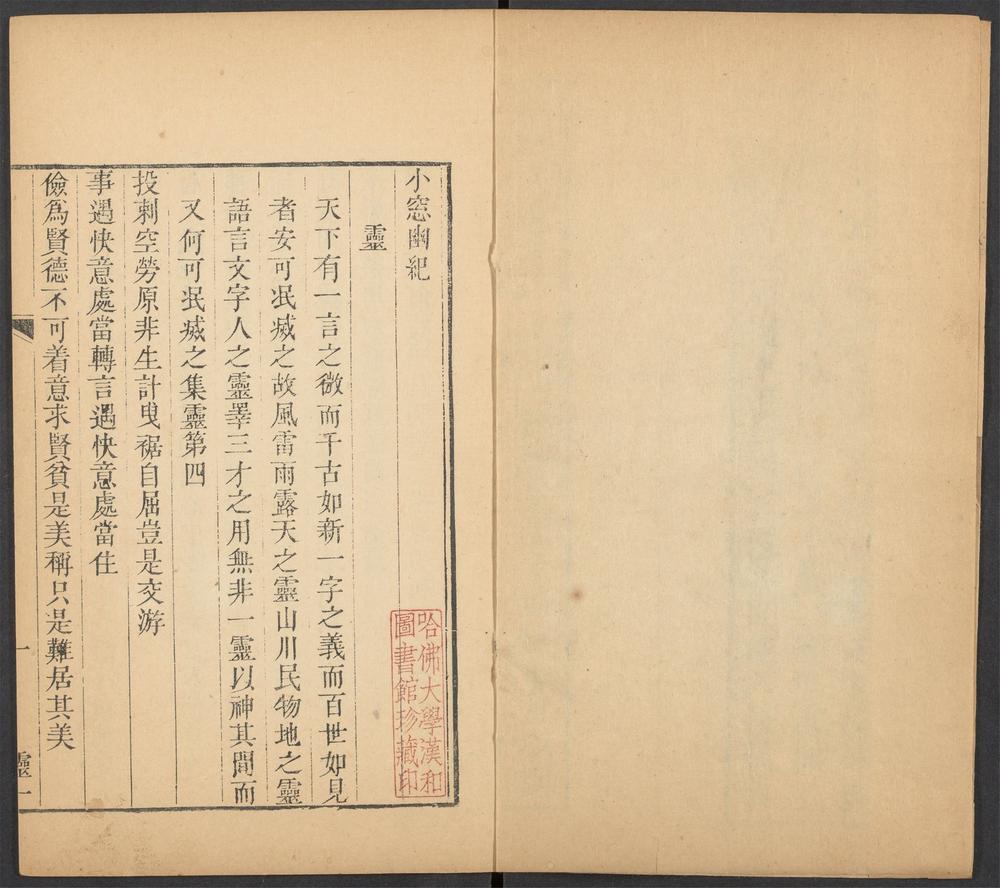 小窓幽紀
靈
天下有一言之微而千古如新一字之義而百世如見
者安可泯滅之故風雷雨露天之靈山川民物地之靈
語言文字人之靈睪三才之用無非一靈以神其間而
又何可泯滅之集靈第四
投刺空勞原非生計曳裾自屈豈是交游
事遇快意處當轉言遇快意處當住
儉爲賢德不可着意求賢貧是美稱只是難居其美
靈一
一
哈佛大學漢和
圖書館珍藏印